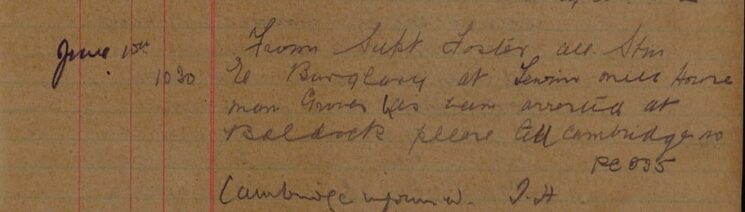 June 15th
1030
From Supt Foster all Stns
Re Burglary at Tewin mill House
man Graves has been arrested at
Baldock please tell Cambridge so
PC 335
Cambridge informed. J.H